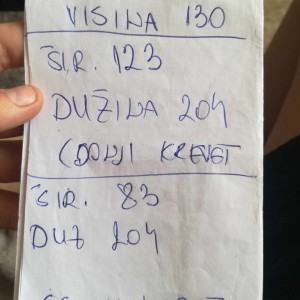 VISINA 130
ŠIR. 123
DUŽINA 204
(DONJI KREVET
ŠIR. 83
DUŽ 204